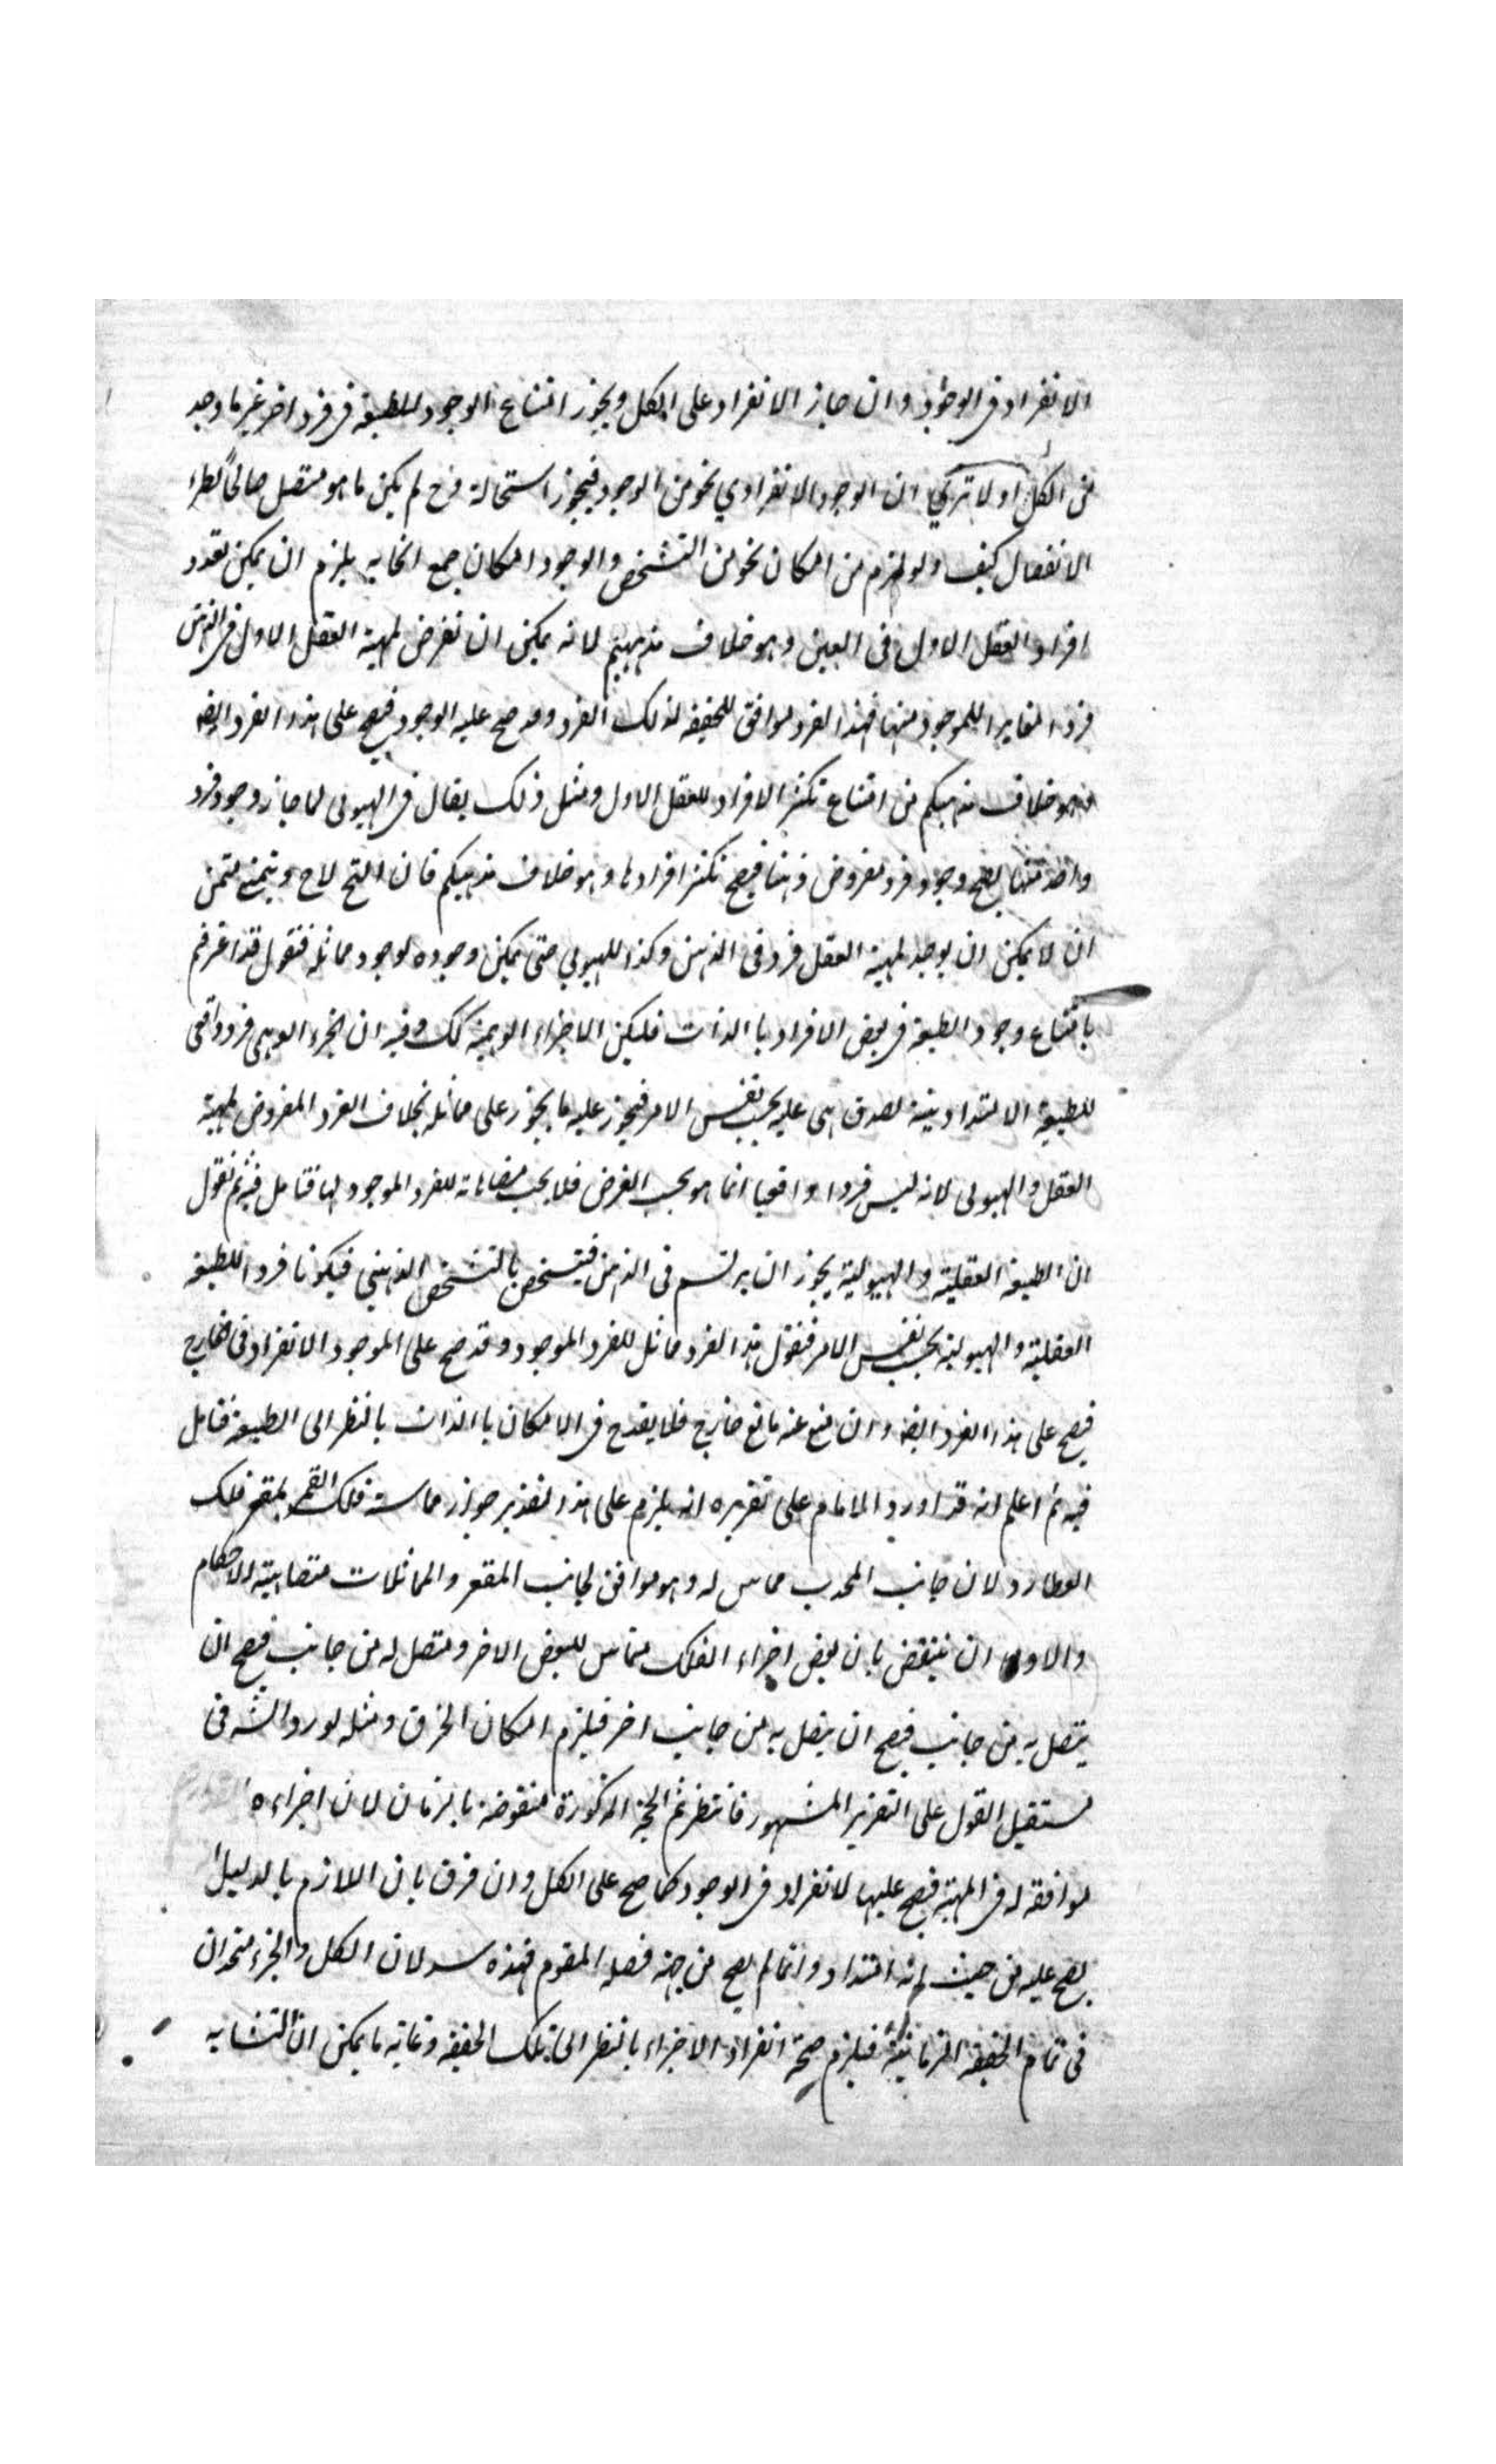 الانفراد فى الوجود وان جاز الانفراد على الكل ويجوز امتناع الوجود للطبيعة فى فرد اخر غير ما وجد
من الكل اولا ترى ان الوجود الانفرادي نحو من الوجود فيجوز استحالة فرح لم يكن ما هو متصل صالحاً لطراء
الانفصال كيف ولو لزم من امكان نحو من التشخص والوجود امكان جمع انحايه يلزم ان يمكن تعدد
افراد العقل الاول فى العين وهو خلاف مذهبهم لانه يمكن ان نفرض لمهية العقل الاول فى الذهن
فردا مغايرا للموجود منها فهذا الفرد موافق للحقيقه لذلك الفرد وقد صح عليه الوجود فيصح على هذا الفرد ايضه
وهو خلاف مذهبكم من امتناع تكثر الافراد للعقل الاول ومثل ذلك يقال فى الهيولى لما جاز وجود فرد
واحد منها يصح وجود فرد مفروض ذهنا فيصح تكثر افرادها وهو خلاف مذهبكم فان التج لاح ويتمنع
ان لا يمكن ان يوجد لمهية العقل فرد فى الذهن وكذا للهيولى حتى يمكن وجوده لوجود مماثله فنقول قد اعرفتم
بامتناع وجود الطبيعة فى بعض الافراد باالذات فليكن الاجزاء الوهمية كك وفيه ان الجزء الوهمى فرد واقعى
للطبيعة الامتدادينية لصدق هى عليه بحسب نفس الامر فيجوز عليه ما يجوز على مماثله بخلاف الفرد المفروض لمهية
العقل والهيولى لانه ليس فردا واقعيا انما هو بحسب الفرض فلا يجب مضاهاته للفرد الموجود لها فتامل فيه ثم نقول
ان الطبيعة العقلية والهيولية يجوز ان يرتسم فى الذهن فيتشخص بالتشخص الذهنيى فيكونا فردا للطبيعة
العقلية والهيولية بحسب نفس الامر فنقول هذا الفرد مماثل للفرد الموجود وقد صح على الموجود الانفراد فى خارج
فيصح على هذا الفرد ايضه وان منع عنه مانع خارج فلا يقدح فى الامكان باالذات بالنظر الى الطبيعة فتامل
فيه ثم اعلم انه قد اورد الامام على تقريره انه يلزم على هذا لتقدير جواز مماسة فلك القمر لمقعر فلك
العطارد لان جانب المحدب مماس له وهو موافق لجانب المقعر والمماثلات متصاهية الاحكام
والاولى ان ينتقض بان بعض اجزاء الفلك مماس للبعض الاخر ومتصل له من جانب فيصح ان
يتصل به من جانب فيصح ان يتصل به من جانب اخر فيلزم امكان الخرق ومثله يورد الشه فى
مستقبل القول على التقرير المشهور فانتظر ثم الحجة المذكورة منقوضة بالزمان لان اجزاءه
موافقة له فى المهية فيصح عليها لانفراد فى الوجود كما صح على الكل وان فرق بان اللازم بالدليل
يصح عليه من حيث انه امتداد وانما لم يصح من جهة فصله المقوم فهذه لان الكل والجزء متحدان
فى تمام الحقيقة الزمانية فيلزم صحة انفراد الاجزاء بالنظر الى تلك الحقيقة وغاية ما يمكن ان التشابه